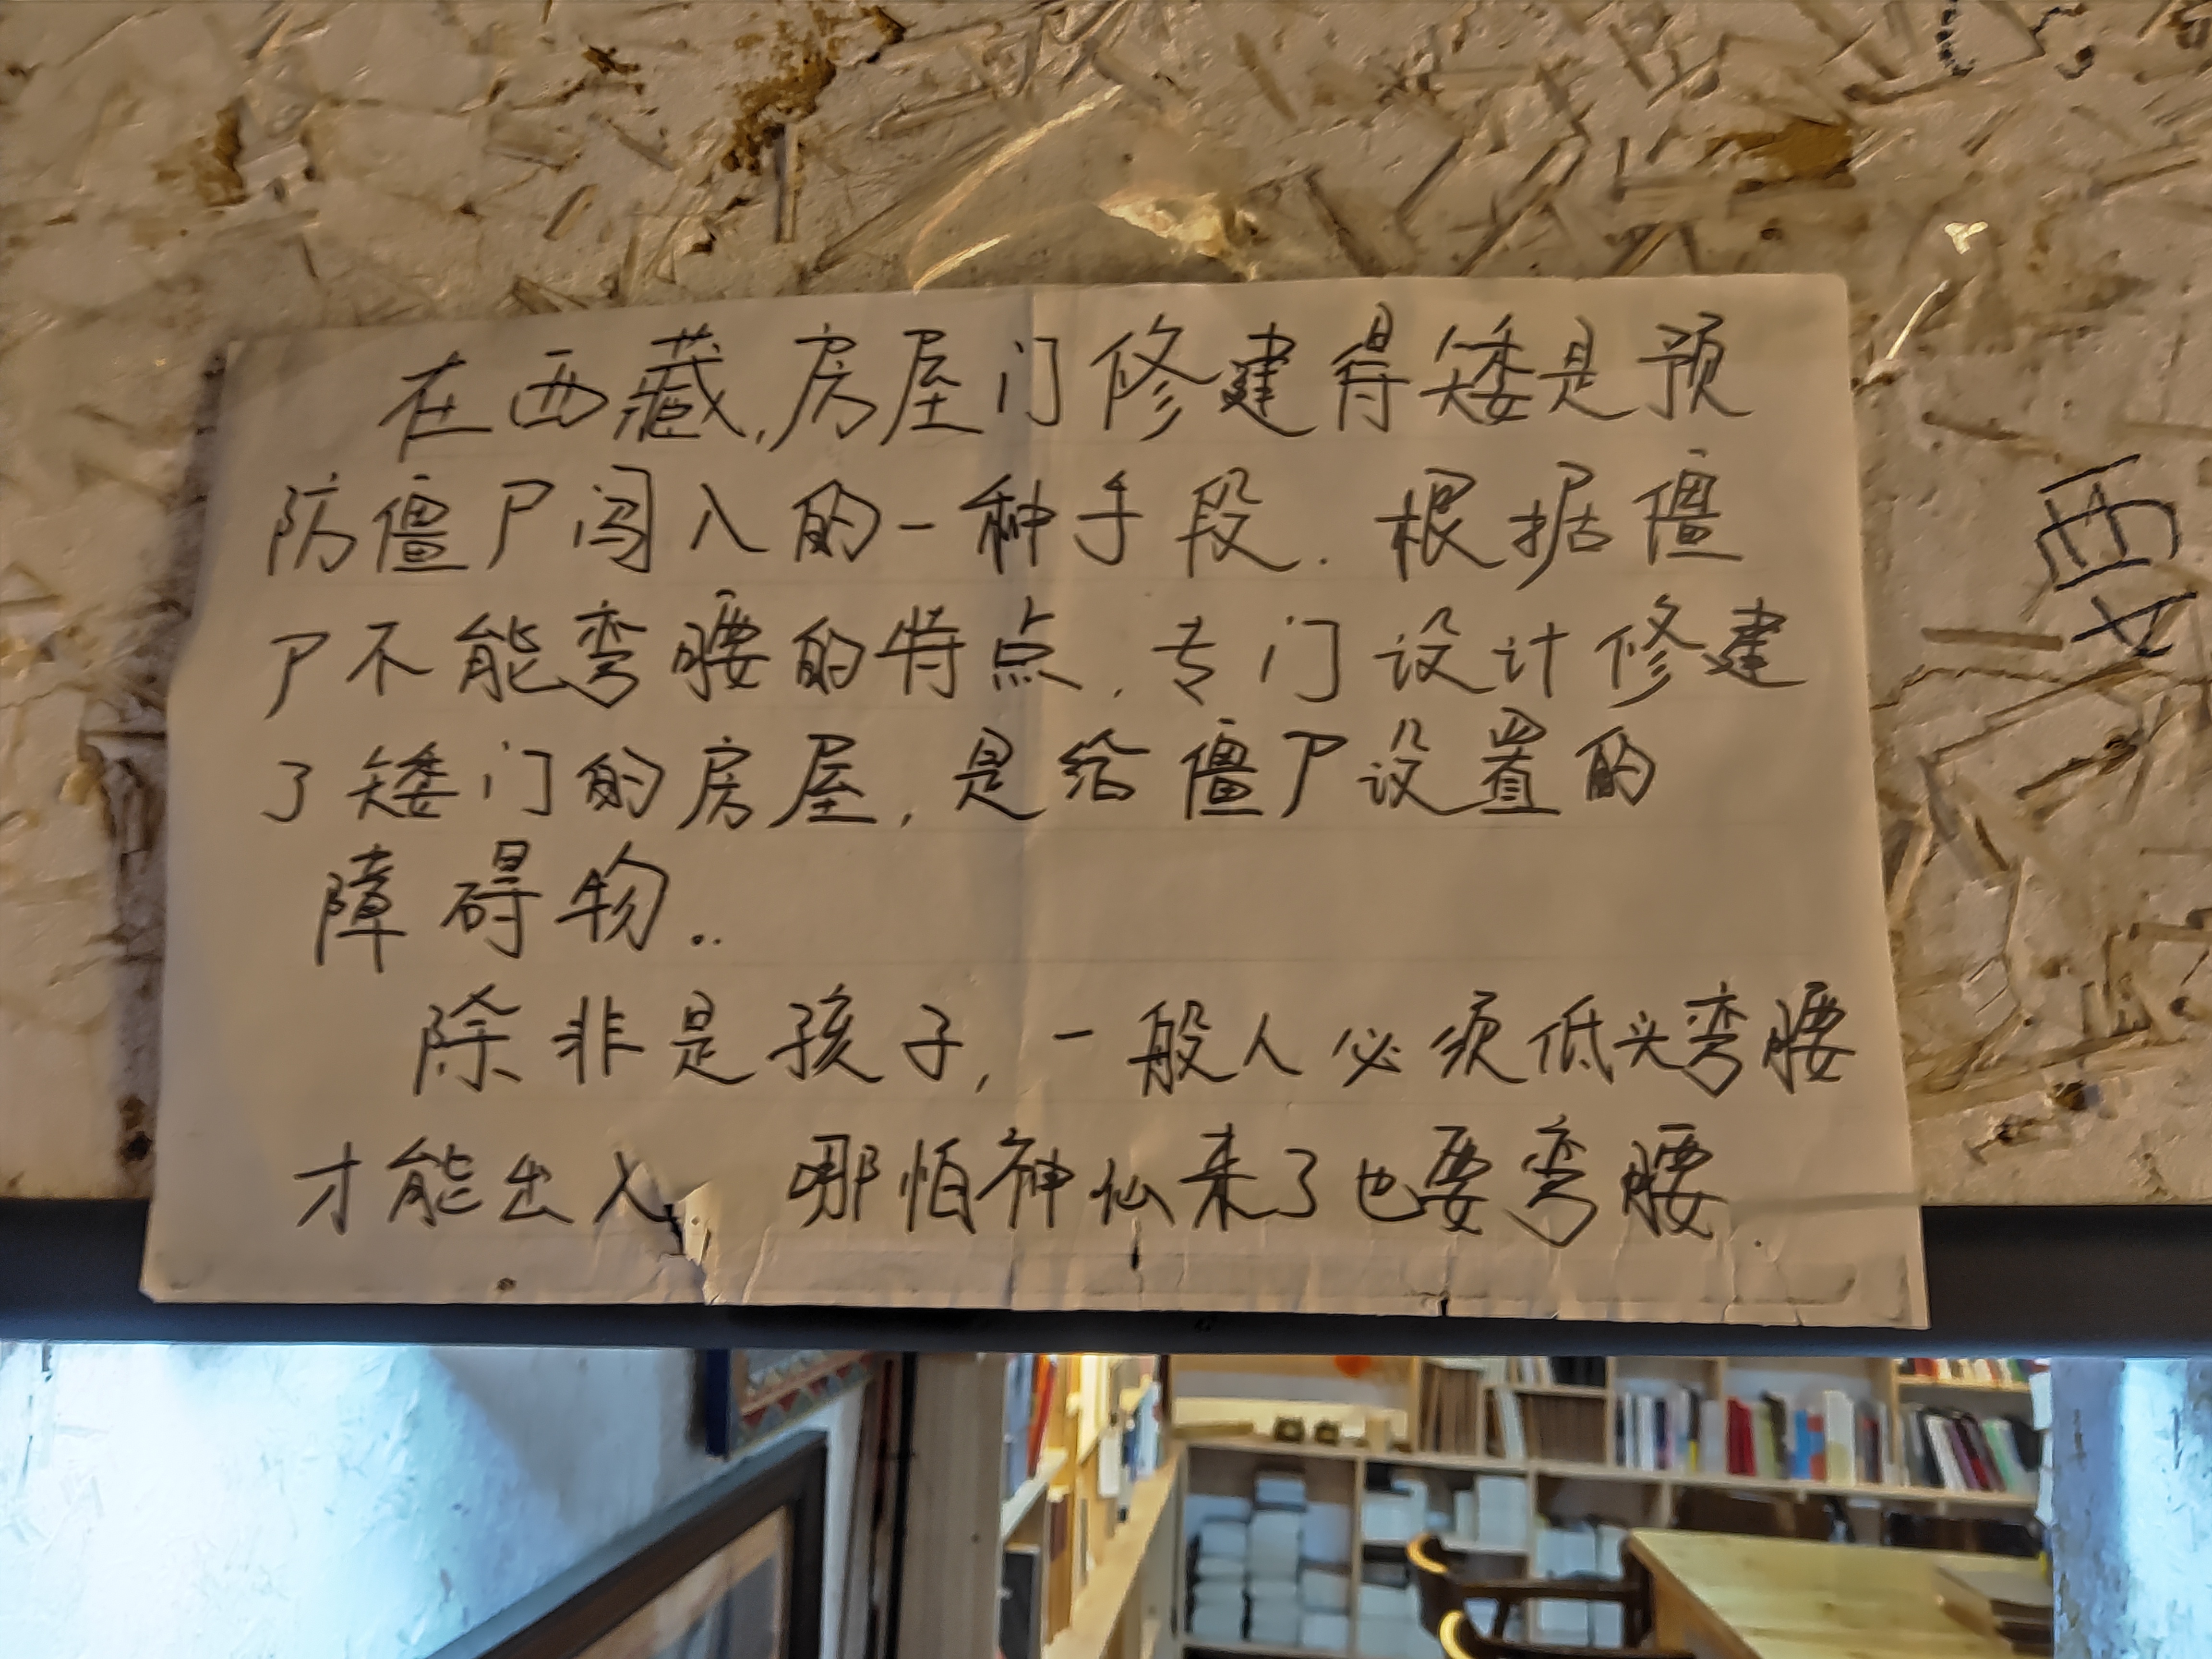 在西藏,房屋门修建得矮是预
防僵尸闯入的一种手段.根据僵
尸不能弯腰的特点,专门设计修建
了矮门的房屋,是给僵尸设置的
障碍物..
除非是孩子,一般人必须低头弯腰
才能出入 哪怕神仙来了也要弯腰.
西